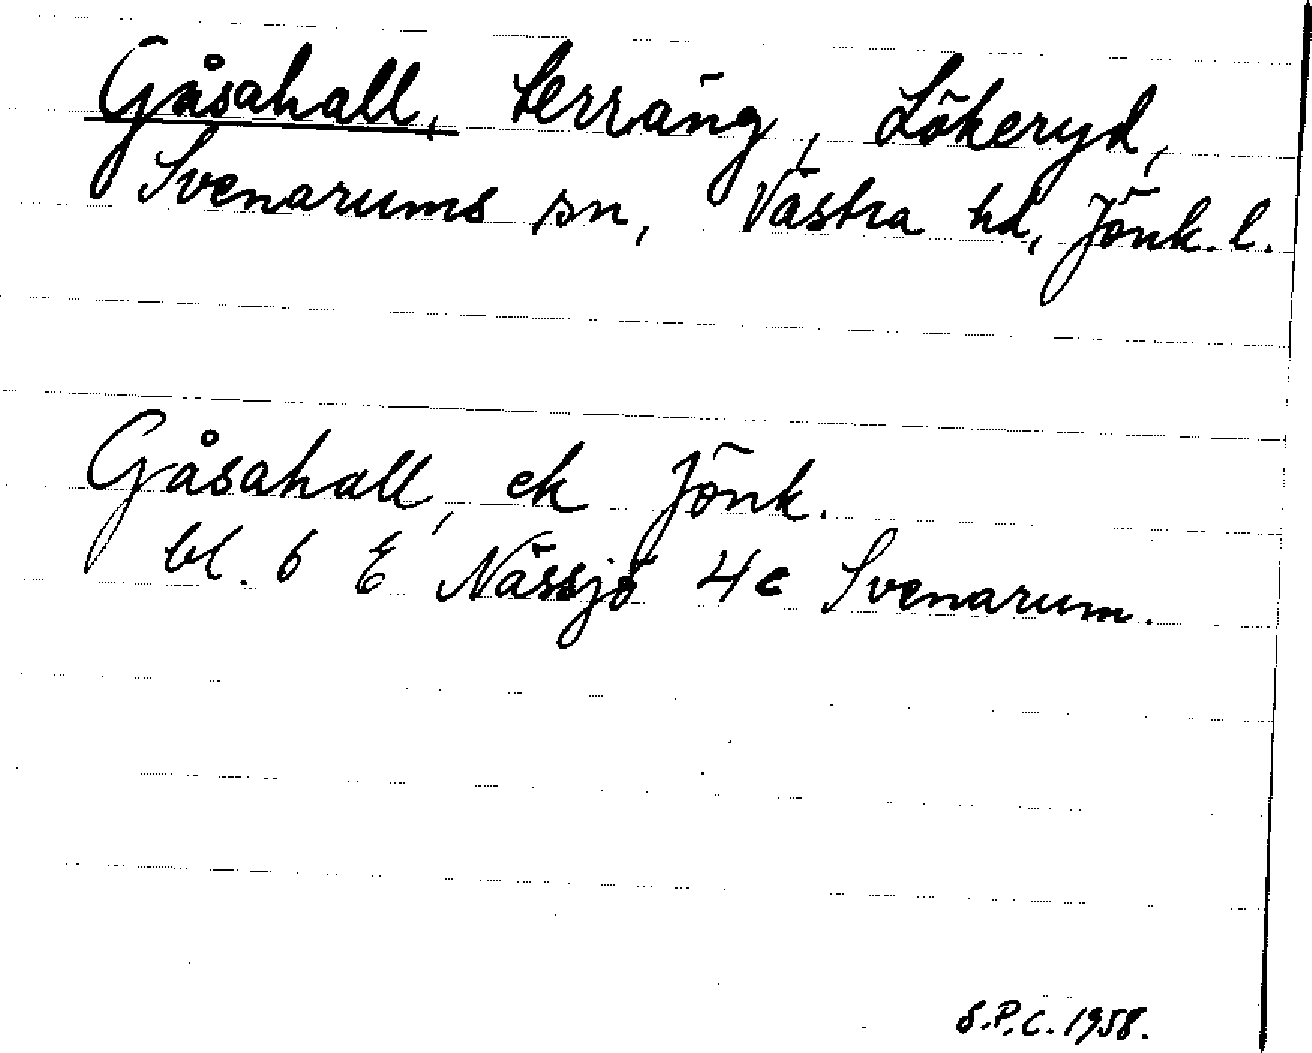 Gåsahall, terräng, Lökeryd,
Svenarums sn, Västra hd, Jönk. l.
Gåsahall, ek Jönk.
bl. 6 E Nässjö 4c Svenarum.
S.P.C. 1958.